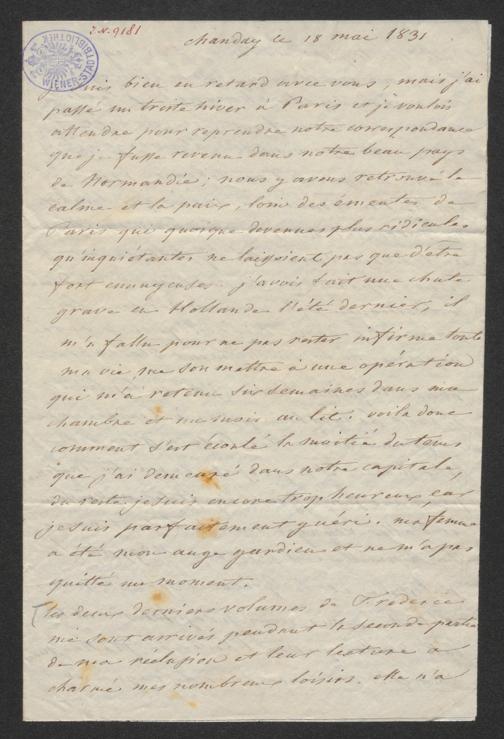 J.N. 9181
WIENER STADTBIBLIOTHEK
chanday le 18 mai 1831
je suis bien en retard avec vous, mais j'ai
passé un triste hiver à Paris et je voulois
attendre pour reprendre notre correspondance
que je fusse revenu dans notre beau pays
de Normandie; nous y avons retrouvé le
calme et la paix, loin des émeutes de
Paris qui quoique devenues plus ridicules
qu'inquiétantes ne laissoient pas que d'etre
fort ennuyeuses. j'avois fait une chute
grave en Hollande l'été dernier, il
m'a fallu pour ne pas rester infirme toute
ma vie me soumettre à une opération
qui m'a retenu six semaines dans ma
chambre et un mois au lit. voila donc
comment s'est écoulé la moitié du tems
que j'ai demeuré dans notre capitale,
du reste je suis encore trop heureux car
je suis parfaitement guéri. ma femme
a été mon ange gardien et ne m'a pas
quitté un moment.
les deux derniers volumes de Frédéric
me sont arrivés pendant la seconde partie
de ma réclusion et leur lecture a
charmé mes nombreux loisirs. elle n'a